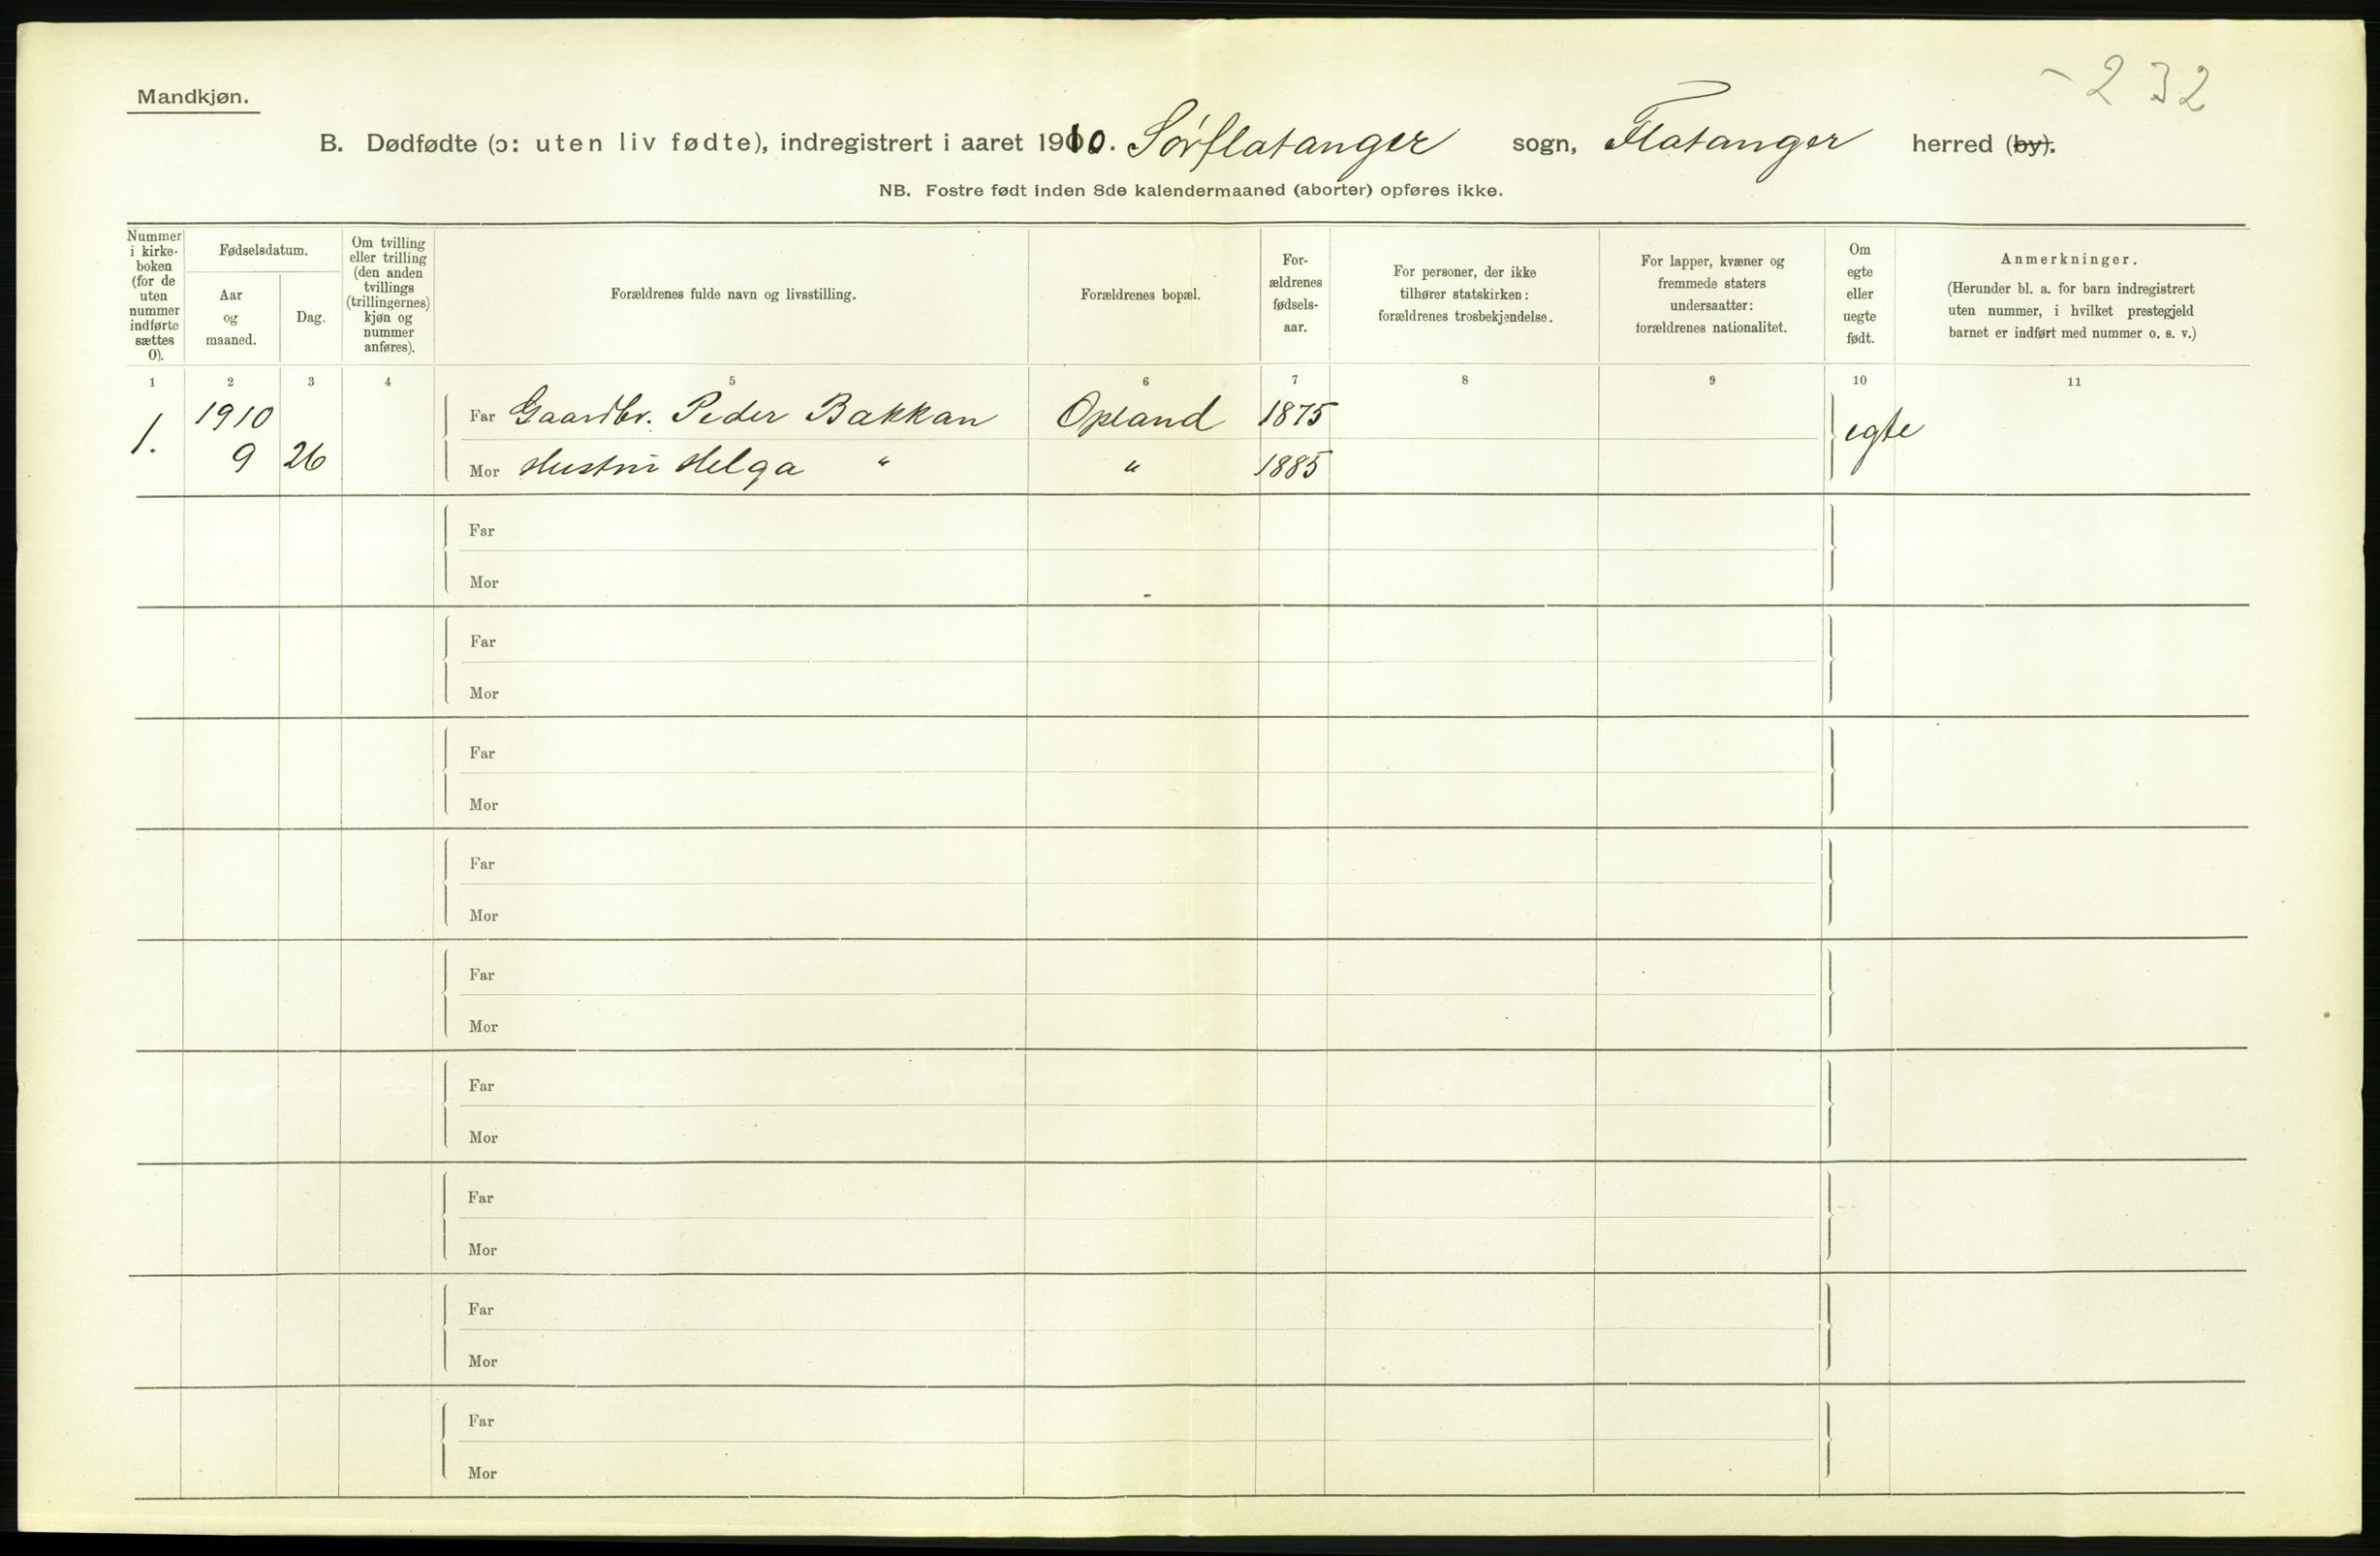 - 232
Mandkjøn.
B. Dødfødte (ɔ: uten liv fødte), indregistrert i aaret 1910. Sørflatanger sogn, Flatanger herred (by).
NB. Fostre født inden 8de kalendermaaned (aborter) opføres ikke.
Nummer
i kirke-
boken
(for de
uten
nummer
indførte
sættes
0).
Fødselsdatum.
Aar
og
maaned.
Dag.
Om tvilling
eller trilling
(den anden
tvillings
(trillingernes)
kjøn og
nummer
anføres).
Forældrenes fulde navn og livsstilling.
Forældrenes bopæl.
For-
ældrenes
fødsels-
aar.
For personer, der ikke
tilhører statskirken:
forældrenes trosbekjendelse.
For lapper, kvæner og
fremmede staters
undersaatter:
forældrenes nationalitet.
Om
egte
eller
uegte
født.
Anmerkninger.
(Herunder bl. a. for barn indregistrert
uten nummer, i hvilket prestegjeld
barnet er indført med nummer o. s. v.)
1 2 3 4 5 6 7 8 9 10 11
1. 1910 Far Gaardbr. Peder Bakkan Opland 1875 egte
9 26 Mor Hustru Helga " " 1885
Far
Mor
Far
Mor
Far
Mor
Far
Mor
Far
Mor
Far
Mor
Far
Mor
Far
Mor
Far
Mor